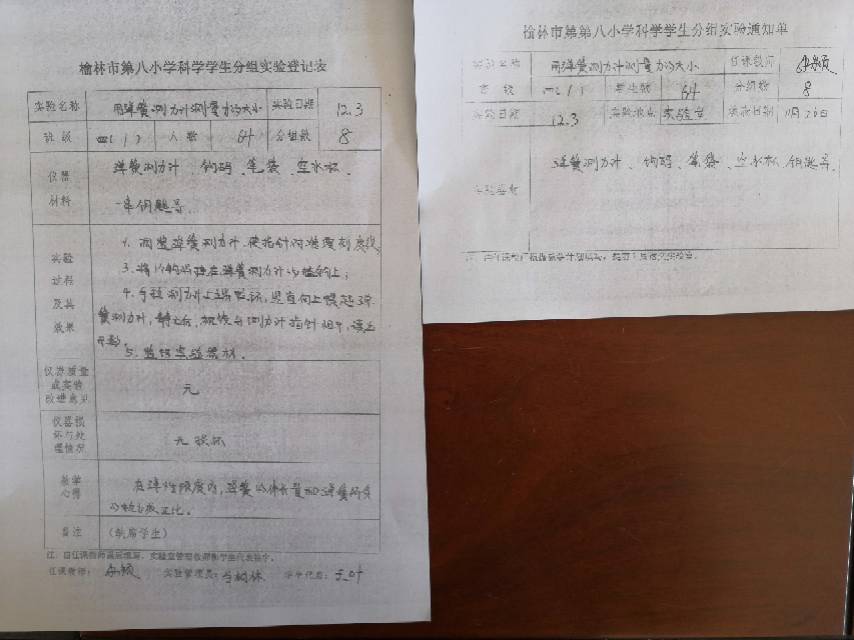 榆林市第八小学科学学生分组实验登记表
实验名称 用弹簧测力计测量力的大小 实验日期 12.3
班级 四(1) 人数 64 分组数 8
仪器材料 弹簧测力计、钩码、笔袋、空水杯、
一串钥匙等.
实验过程及其效果
1. 调整弹簧测力计,使指针对准零刻度线;
3. 将 钩码挂在弹簧测力计的挂钩上;
4. 手提测力计上端 竖直向上慢起弹
簧测力计, 视线与测力计指针相平,读出
5. 整理实验器材.
仪器质量或实验改进意见 无
仪器损坏与处理情况 无损坏
教学心得 在弹性限度内,弹簧的伸长量和弹簧所受
的 成正比.
备注 (缺席学生)
注:由任课教师课后填写,实验室管理教师和学生代表
任课教师: 实验管理员: 学生代表:
榆林市第第八小学科学学生分组实验通知单
实验名称 用弹簧测力计测量力的大小 任课教师
班级 四(1) 学生数 64 分组数 8
实验日期 12.3 实验地点 实验室 填报日期 11月26日
弹簧测力计、钩码、笔袋、空水杯、钥匙等.